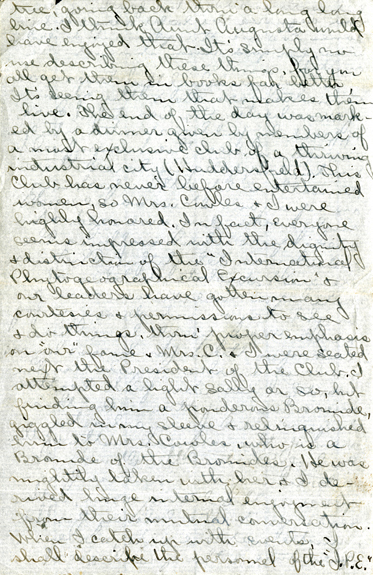 tree going back thro' a long long
line. I think Aunt Augusta would
have enjoyed that. It's simply no
use describing these things, for you
all get them in books far better.
It's seeing them that makes them
live. The end of the day was mark-
ed by a dinner given by members of
a most exclusive club of a thriving
industrial city (Huddersfield). This
Club has never before entertained
women, so Mrs. Cowles & I were
highly honored. In fact, everyone
seems impressed with the dignity
& distinction of the "International
Phytogeographical Excursion" &
our leaders have gotten many
courtesies & permissions to see
& do things thro' proper emphasis
on "our" fame. Mrs. C. & I were seated
next the President of the Club. I
attempted a light sally or so, but
finding him a ponderous Bromide,
giggled in my sleeve & relinquished
him to Mrs. Cowles, who is a
Bromide of the Bromides. He was
mightily taken with her & I de-
rived huge internal enjoyment
from their mutual conversation.
When I catch up with events, I
shall describe the personnel of the "I.P.E."